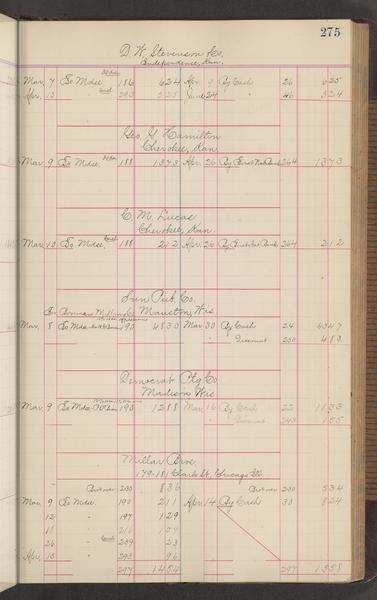 275
D. W. Stevenson & Co.
Independence, Kan.
Mar. 7 To Mdse. 186 624 Apr. 9 By Cash 26 625
Apr. 13 " 293 525 June 24 " 46 524
Geo. G. Hamilton
Cherokee, Kan.
Mar 9 To Mdse. 188 1373 Apr. 26 By First Nat Bank 264 1373
C. M. Lucas
Cherokee, Kan.
Mar. 10 To Mdse. 188 212 Apr. 26 By First Nat Bank 264 212
Sun Pub. Co.
Mauston, Wis.
Mar. 8 To Mdse 190 4830 Mar 30 By Cash 24 4347
" Discount 250 483
Democrat Ptg Co
Madison Wis
Mar. 9 To Mdse 190 1288 Mar 16 By Cash 22 1133
" Discount 243 155
Millar Bros.
179-181 Clark St. Chicago Ill.
Brot over 230 836 Brot over 230 534
Mar 9 To Mdse. 190 211 Apr. 14 By Cash 30 824
12 " 197 129
18 " 216
26 " 239 23
Apr. 13 " 293 96
297 1454 297 1358